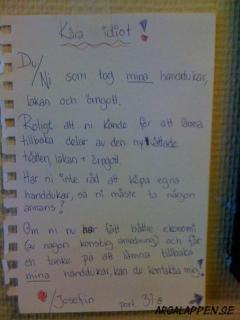 Kära idiot!
Du/
Ni som tog mina handdukar,
lakan och örngott.
Roligt att ni kände för att lämna
tillbaka delar av den nytvättade
tvätten, lakan + örngott.
Har ni inte råd att köpa egna
handdukar, så ni måste ta någon
annans?
Om ni nu har fått bättre ekonomi
(av någon konstig anledning) och får
en tanke på att lämna tillbaka
mina handdukar, kan de kontakta mej!
/Josefin
port 31:8
ARGALAPPEN.SE